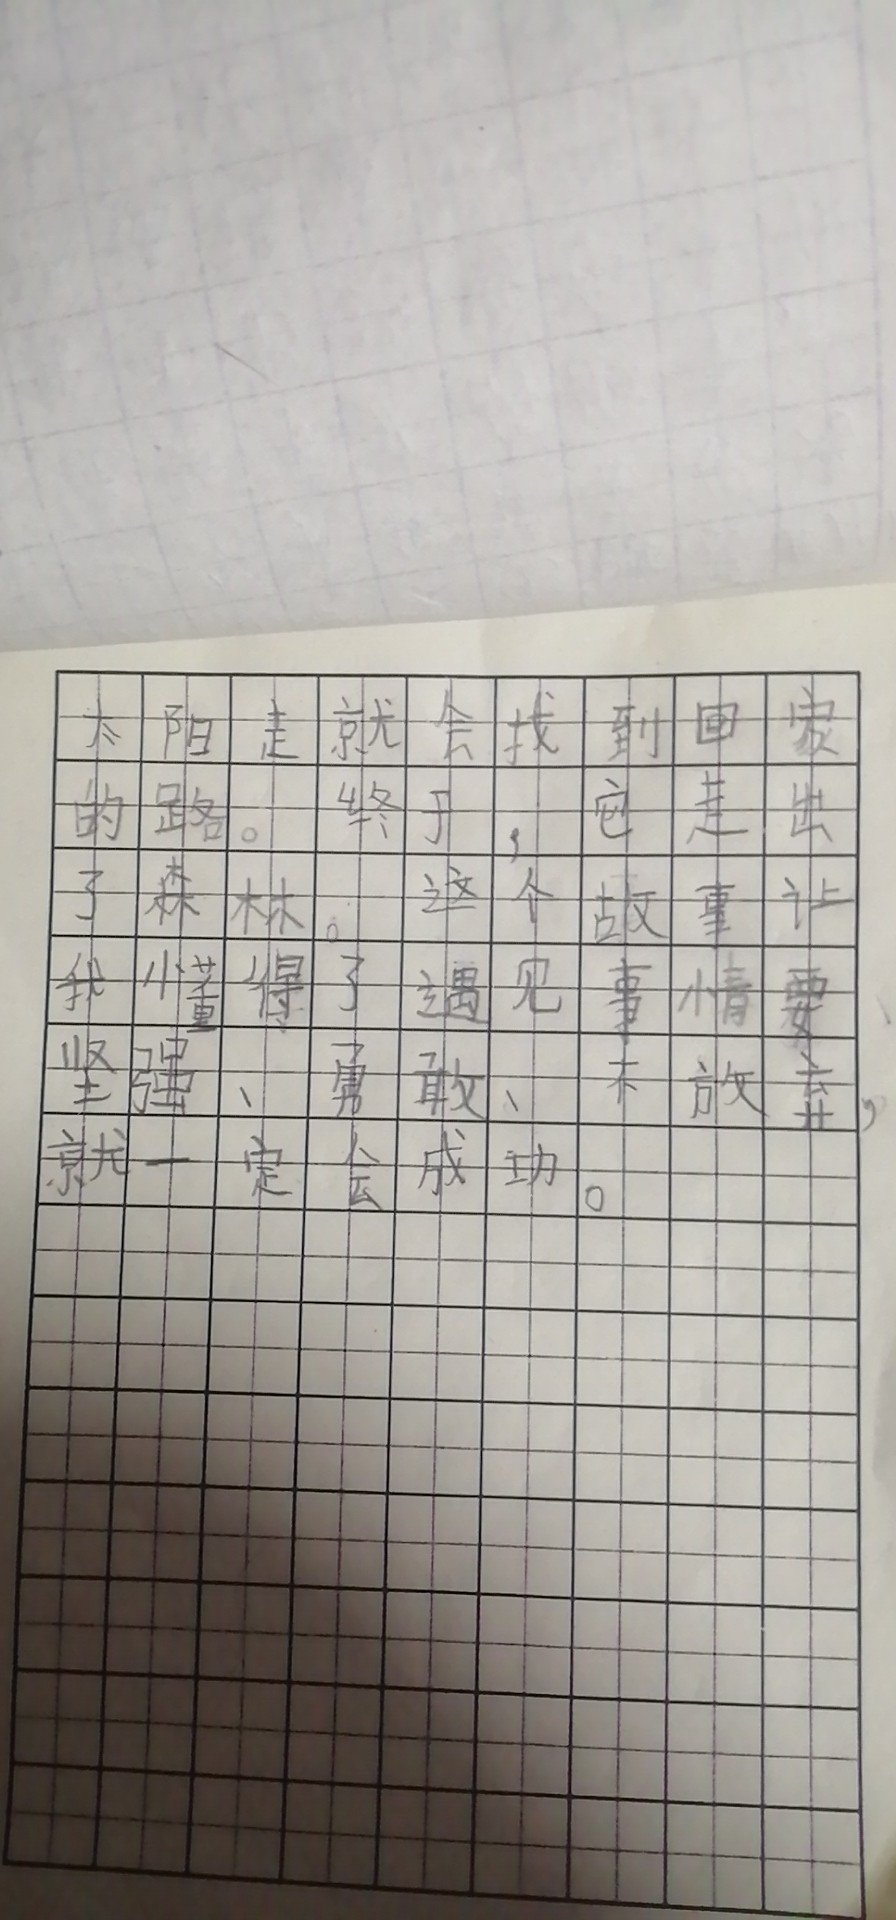 太阳走就会找到回家
的路。终于,它走出
了森林。这个故事让
我懂得了遇见事情要
坚强、勇敢、不放弃,
就一定会成功。